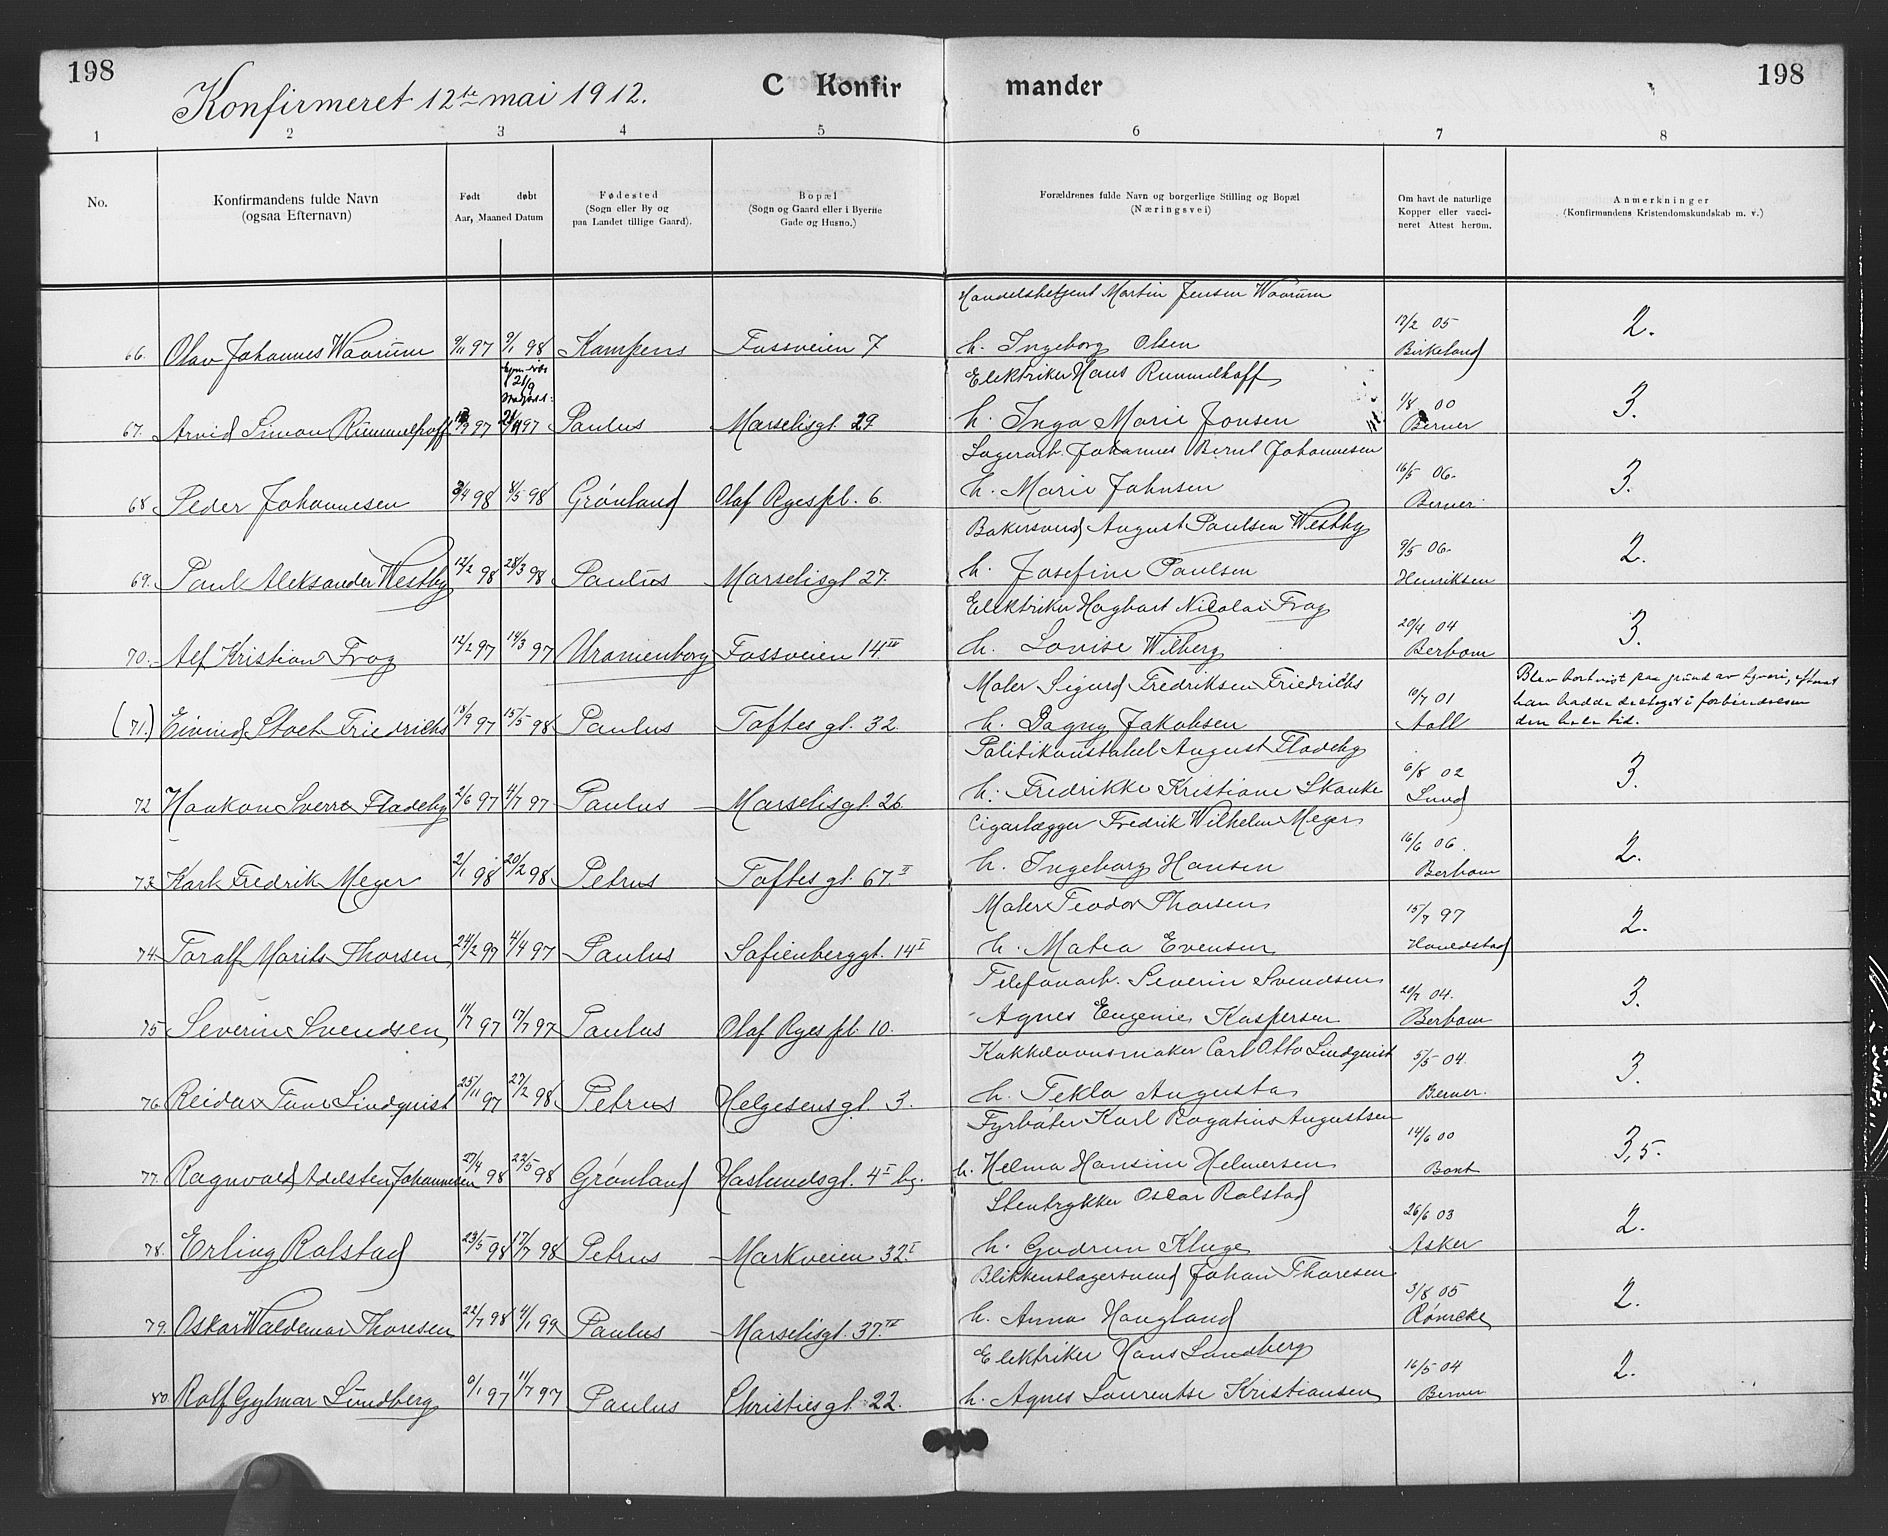 198
Konfirmeret 12te mai 1912.
C Konfirmander
198
1 2 3 4 5 6 7 8
No.
Konfirmandens fulde Navn
(ogsaa Efternavn)
Født døbt
Aar, Maaned Datum
Fødested
(Sogn eller By og
paa Landet tillige Gaard).
Bopæl
(Sogn og Gaard eller i Byerne
Gade og Husno.)
Forældrenes fulde Navn og borgerlige Stilling og Bopæl
(Næringsvei)
Om havt de naturlige
Kopper eller vacci-
neret Attest herom.
Anmerkninger
(Konfirmandens Kristendomskundskab m. v.)
Handelsbetjent Martin Jensen Waarum
66. Olav Johannes Waarum 9/11 97 9/1 98 Kampens Fossveien 7 h. Ingeborg Olsen 12/2 05 Birkeland 2.
Elektriker Hans Rummelhoff
67. Arvid Simon Rummelhoff 97 97 Paulus Marselisgt. 29 h. Inga Marie Jonsen 1/8 00 Berner 3.
Lagerarb. Johannes Bernt Johannesen
68. Peder Johannesen 3/4 98 8/5 98 Grønland Olaf Ryespl. 6. h. Marie Johnsen 16/5 06. Berner 3.
Bakersvend August Paulsen Westby
69. Paul Aleksander Westby 12/2 98 28/3 98 Paulus Marselisgt 27. h. Josefine Paulsen 9/5 06. Henriksen 2.
Elektriker Hagbart Nicolai Frog
70. Alf Kristian Frog 12/2 97 14/3 97 Uranienborg Fossveien 14 h. Lovise Wilberg 20/4 04 Berbom 3.
Maler Sigurd Fredriksen Friedrichs
(71.) Eivind Stoet Friedrichs 18/9 97 15/5 98 Paulus Toftes gt. 32. h. Dagny Jakobsen 10/7 01 Aall
Blev bortvist paa grund av tyveri, efterat
han hadde deltaget i forberedelsen
den hele tid.
Politikonstabel August Fladeby
72 Haakon Sverre Fladeby 2/6 97 4/7 97 Paulus Marselisgt. 26 h. Fredrikke Kristiane Skanke 6/8 02 Lund 3.
Cigarlægger Fredrik Wilhelm Meyer
73. Karl Fredrik Meyer 2/1 98 20/2 98 Petrus Toftes gt. 67.II h. Ingeborg Hansen 16/6 06. Berbom 2.
Maler Teodor Thorsen
74. Toralf Marits Thorsen 24/2 97 4/4 97 Paulus Sofienberggt. 14I h. Matea Evensen 15/7 97 Hovedstad 2.
Telefonarb. Severin Svendsen
75 Severin Svendsen 11/7 97 17/7 97 Paulus Olaf Ryes pl. 10. Agnes Eugenie Kaspersen 20/7 04. Berbom 3.
Kakkelovnsmaker Carl Otto Lindquist
76. Reidar Tune Lindquist 25/11 97 27/2 98 Petrus Helgesens gt. 3. h. Tekla Augusta 5/5 04. Berner. 3.
Fyrbøter Karl Rogatius Augustsen
77. Ragnvald Adelsten Johannesen 27/4 98 22/5 98 Grønland Haslundsgt. 4I bg. h. Helma Hansine Helmersen 14/6 00 Bont 3,5.
Stentrykker Oscar Rolstad
78. Erling Rolstad 23/5 98 17/7 98 Petrus Markveien 32.I h. Gudrun Kluge 26/6 03 Asker 2.
Blikkenslagersvend Johan Thoresen
79. Oskar Waldemar Thoresen 22/7 98 4/1 99 Paulus Marselisgt. 37. h. Anna Haugland 3/8 05 Rømcke 2.
Elektriker Hans Lundberg
80 Rolf Gylmar Lundberg 9/1 97 11/7 97 Paulus Christiesgt. 22. h. Agnes Laurentse Kristiansen 16/5 04 Berner 2.